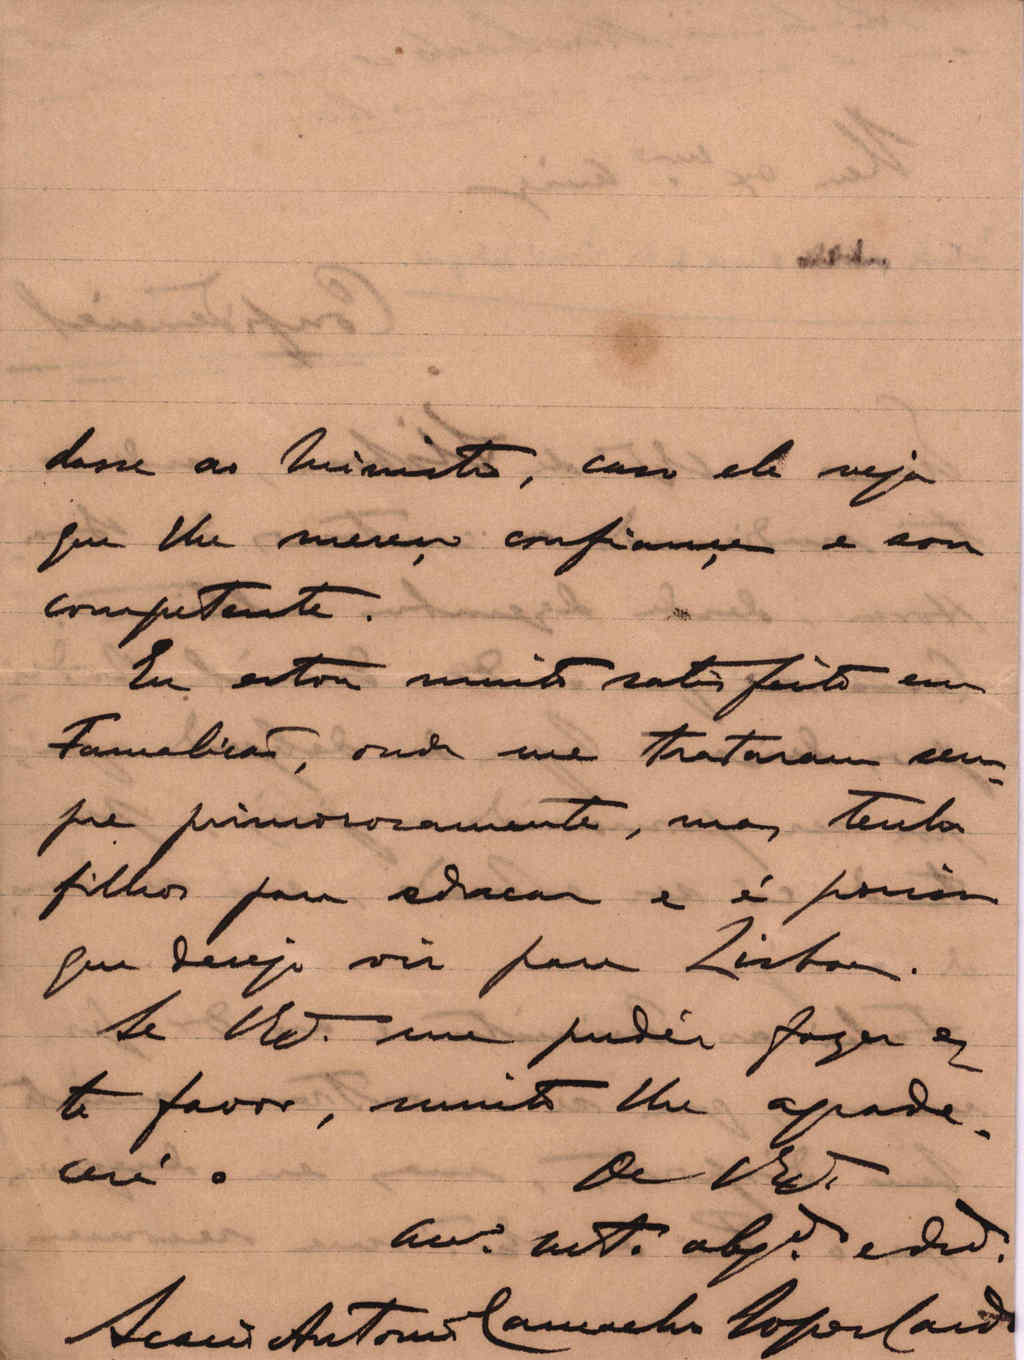 dasse ao Ministro, caso ele veja
que lhe mereço confiança e sou
competente.
Eu estou muito satisfeito em
Famalicão, onde me trataram sem-
pre primorosamente, mas tenho
filhos para educar e é por isso
que desejo vir para Lisboa.
Se V. Ex.ª me pudér fazer es
te favor, muito lhe agrade-
cerei.
De V. Ex.ª
am.º mt.º obg.do e
António Camacho Lopes Cardoso
Confidencial